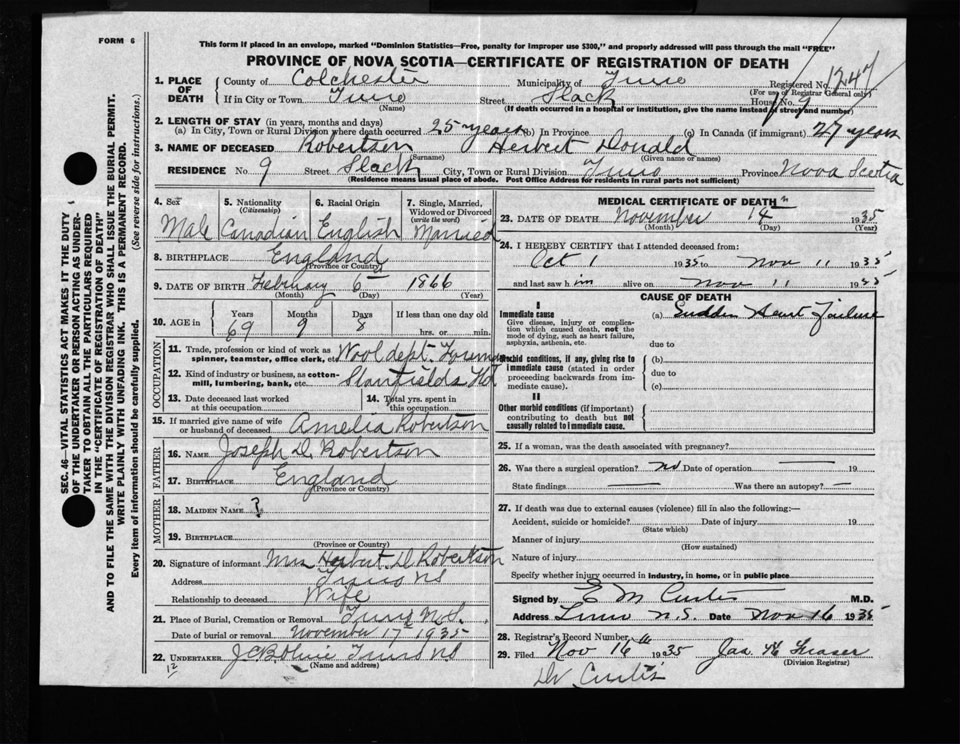 FORM 6
This form if placed in an envelope, marked "Dominion Statistics—Free, penalty for improper use $300," and properly addressed will pass through the mail "FREE"
PROVINCE OF NOVA SCOTIA—CERTIFICATE OF REGISTRATION OF DEATH
1. PLACE OF DEATH County of Colchester Municipality of Truro Registered No. 1247
(For use of Registrar General only)
If in City or Town Truro Street Slack House No. 9
(Name) (If death occurred in a hospital or institution, give the name instead of street and number)
2. LENGTH OF STAY (in years, months and days)
(a) In City, Town or Rural Division where death occurred 25 years (b) In Province (c) In Canada (if immigrant) 27 years
3. NAME OF DECEASED Robertson Herbert Donald
(Surname) (Given name or names)
RESIDENCE No. 9 Street Slack City, Town or Rural Division Truro Province Nova Scotia
(Residence means usual place of abode. Post Office Address for residents in rural parts not sufficient)
4. Sex Male
5. Nationality (Citizenship) Canadian
6. Racial Origin English
7. Single, Married, Widowed or Divorced (write the word) Married
8. BIRTHPLACE England
(Province or Country)
9. DATE OF BIRTH February 6 1866
(Month) (Day) (Year)
10. AGE in Years Months Days If less than one day old
69 9 8 hrs. or min.
OCCUPATION
11. Trade, profession or kind of work as spinner, teamster, office clerk, etc. Wool dept. Foreman
12. Kind of industry or business, as cotton-mill, lumbering, bank, etc. Stanfields Ltd
13. Date deceased last worked at this occupation
14. Total yrs. spent in this occupation
15. If married give name of wife or husband of deceased Amelia Robertson
FATHER
16. NAME Joseph D. Robertson
17. BIRTHPLACE England
(Province or Country)
MOTHER
18. MAIDEN NAME ?
19. BIRTHPLACE
(Province or Country)
20. Signature of informant Mrs Herbert D Robertson
Address Truro NS
Relationship to deceased Wife
21. Place of Burial, Cremation or Removal Truro N.S.
Date of burial or removal November 17th 1935
22. UNDERTAKER Truro NS
(Name and address)
12
MEDICAL CERTIFICATE OF DEATH
23. DATE OF DEATH November 14th 1935
(Month) (Day) (Year)
24. I HEREBY CERTIFY that I attended deceased from:
Oct 1 1935 to Nov 11 1935
and last saw him alive on Nov 11 1935
CAUSE OF DEATH
I
Immediate cause
Give disease, injury or complication which caused death, not the mode of dying, such as heart failure, asphyxia, asthenia, etc.
(a) Sudden Heart Failure
due to
Morbid conditions, if any, giving rise to immediate cause (stated in order proceeding backwards from immediate cause).
(b)
due to
(c)
II
Other morbid conditions (if important) contributing to death but not causally related to immediate cause.
25. If a woman, was the death associated with pregnancy?
26. Was there a surgical operation? no Date of operation 19
State findings Was there an autopsy?
27. If death was due to external causes (violence) fill in also the following:—
Accident, suicide or homicide? Date of injury 19
(State which)
Manner of injury
(How sustained)
Nature of injury
Specify whether injury occurred in industry, in home, or in public place
Signed by E M Curtis M.D.
Address Truro N.S. Date Nov 16 1935
28. Registrar's Record Number
29. Filed Nov 16 1935 Jas. H Fraser
(Division Registrar)
Dr Curtis
SEC. 46—VITAL STATISTICS ACT MAKES IT THE DUTY
OF THE UNDERTAKER OR PERSON ACTING AS UNDER-
TAKER TO OBTAIN ALL THE PARTICULARS REQUIRED
IN THE "CERTIFICATE OF REGISTRATION OF DEATH"
AND TO FILE THE SAME WITH THE DIVISION REGISTRAR WHO SHALL ISSUE THE BURIAL PERMIT.
WRITE PLAINLY WITH UNFADING INK. THIS IS A PERMANENT RECORD.
Every item of information should be carefully supplied. (See reverse side for instructions.)